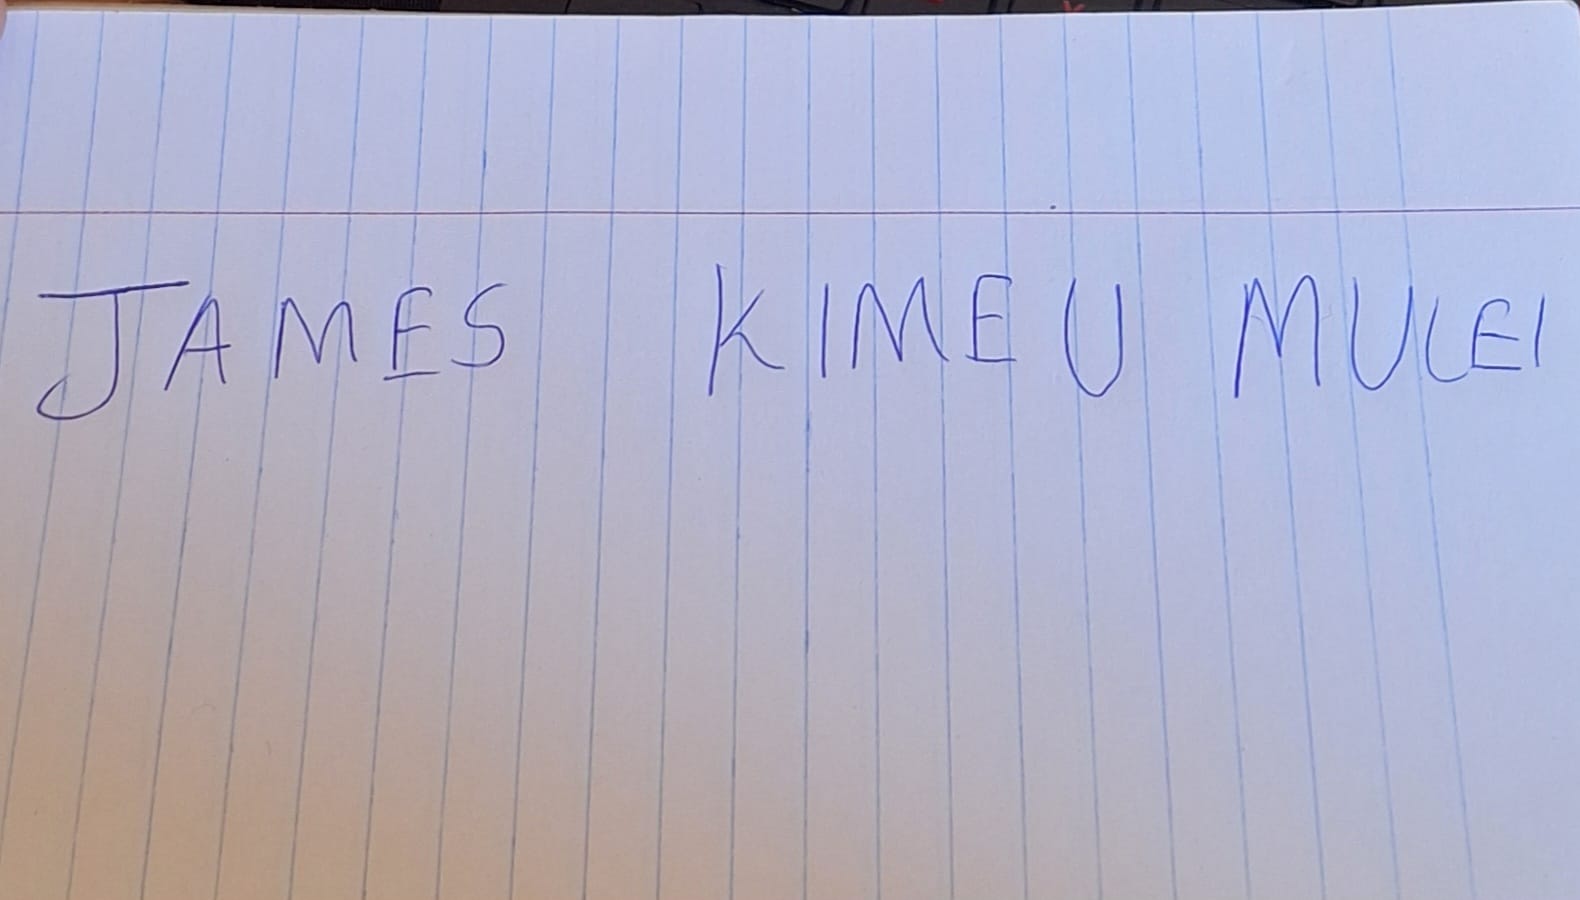 JAMES KIMEU MULEI